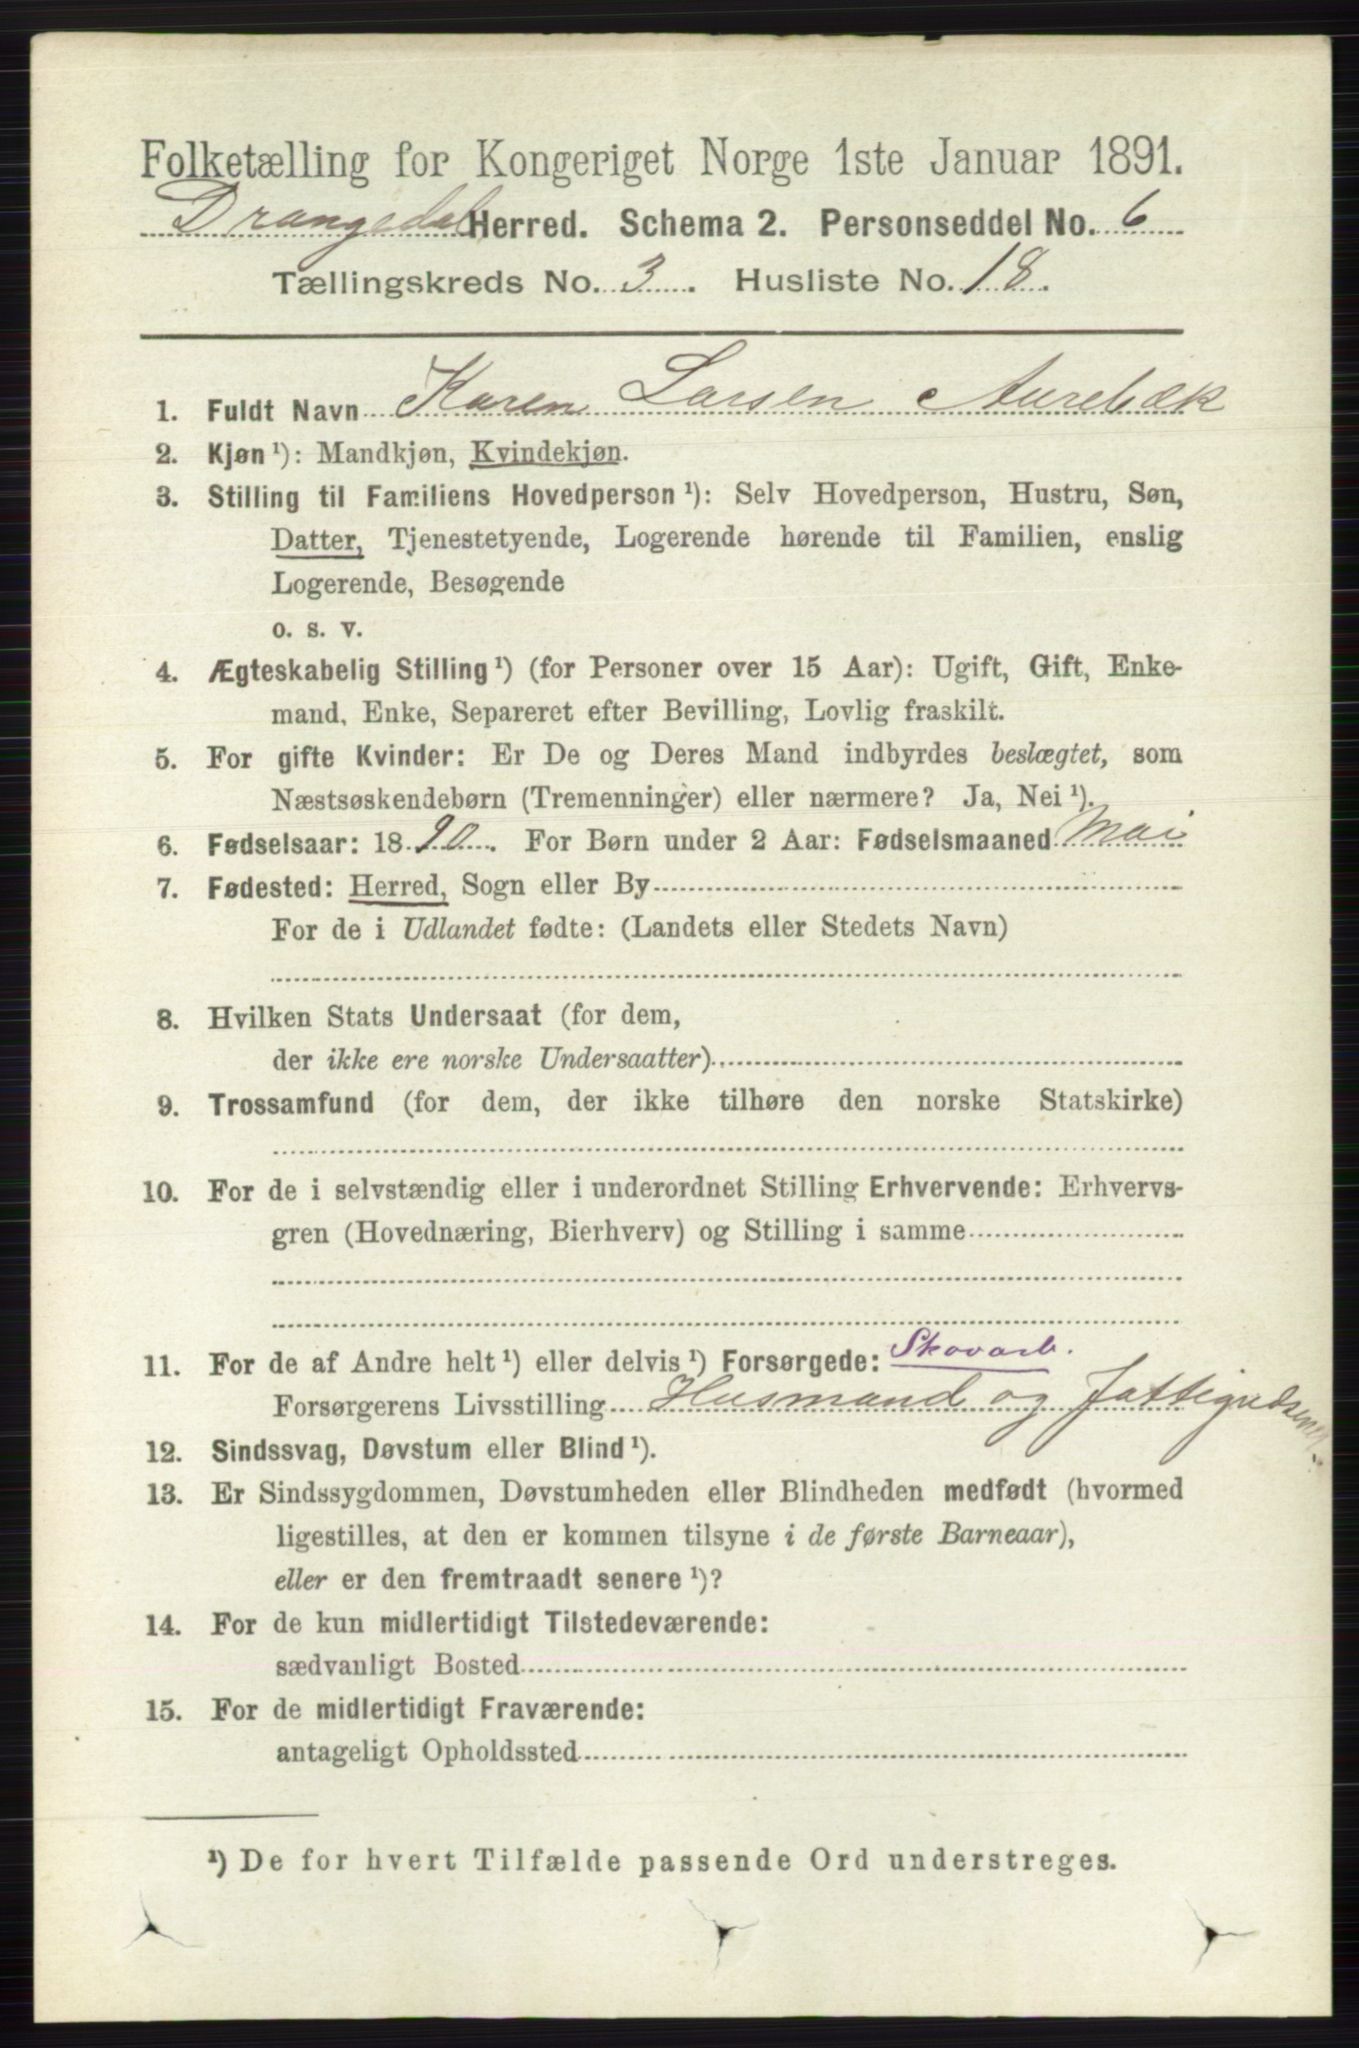 Folketælling for Kongeriget Norge 1ste Januar 1891.
Drangedal Herred. Schema 2. Personseddel No. 6
Tællingskreds No. 3. Husliste No. 18.
1. Fuldt Navn Karen Larsen Aurebæk
2. Kjøn ¹): Mandkjøn, Kvindekjøn.
3. Stilling til Familiens Hovedperson ¹): Selv Hovedperson, Hustru, Søn,
Datter, Tjenestetyende, Logerende hørende til Familien, enslig
Logerende, Besøgende
o. s. v.
4. Ægteskabelig Stilling ¹) (for Personer over 15 Aar): Ugift, Gift, Enke-
mand, Enke, Separeret efter Bevilling, Lovlig fraskilt.
5. For gifte Kvinder: Er De og Deres Mand indbyrdes beslægtet, som
Næstsøskendebørn (Tremenninger) eller nærmere? Ja, Nei ¹).
6. Fødselsaar: 1890. For Børn under 2 Aar: Fødselsmaaned Mai
7. Fødested: Herred, Sogn eller By
For de i Udlandet fødte: (Landets eller Stedets Navn)
8. Hvilken Stats Undersaat (for dem,
der ikke ere norske Undersaatter)
9. Trossamfund (for dem, der ikke tilhøre den norske Statskirke)
10. For de i selvstændig eller i underordnet Stilling Erhvervende: Erhvervs-
gren (Hovednæring, Bierhverv) og Stilling i samme
Skovarb.
11. For de af Andre helt ¹) eller delvis ¹) Forsørgede:
Forsørgerens Livsstilling Husmand og
12. Sindssvag, Døvstum eller Blind ¹).
13. Er Sindssygdommen, Døvstumheden eller Blindheden medfødt (hvormed
ligestilles, at den er kommen tilsyne i de første Barneaar),
eller er den fremtraadt senere ¹)?
14. For de kun midlertidigt Tilstedeværende:
sædvanligt Bosted
15. For de midlertidigt Fraværende:
antageligt Opholdssted
¹) De for hvert Tilfælde passende Ord understreges.